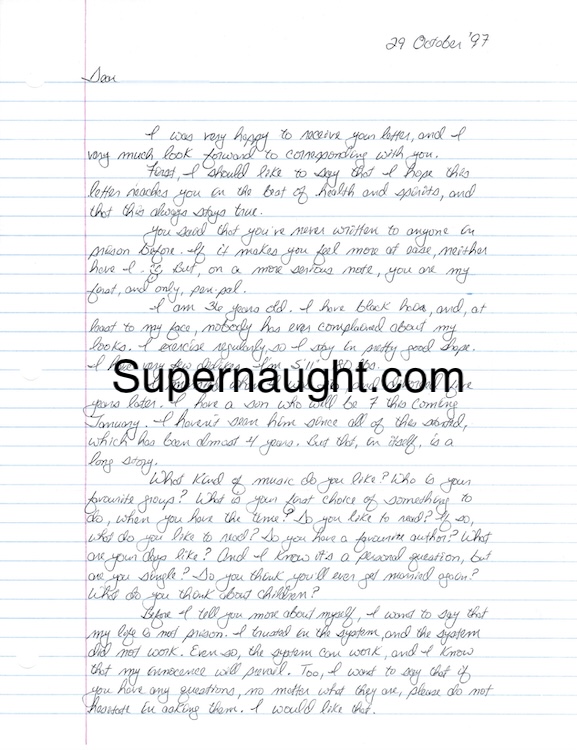 29 October '97
Dear
I was very happy to receive your letter, and I
very much look forward to corresponding with you.
First, I should like to say that I hope this
letter reaches you in the best of health and spirits, and
that this always stays true.
You said that you've never written to anyone in
prison before. If it makes you feel more at ease, neither
have I. But, on a more serious note, you are my
first, and only, pen-pal.
I am 36 years old. I have black hair, and, at
least to my face, nobody has ever complained about my
looks. I exercise regularly, so I stay in pretty good shape.
I have very few I'm 5'11" lbs.
Supernaught.com
years later. I have a son who will be 7 this coming
January. I haven't seen him since all of this started,
which has been almost 4 years. But that, in itself, is a
long story.
What kind of music do you like? Who is your
favourite group? What is your first choice of something to
do, when you have the time? Do you like to read? If so,
what do you like to read? Do you have a favourite author? What
are your days like? And I know it's a personal question, but
are you single? Do you think you'll ever get married again?
What do you think about children?
Before I tell you more about myself, I want to say that
my life is not prison. I trusted in the system, and the system
did not work. Even so, the system can work, and I know
that my innocence will prevail. Too, I want to say that if
you have any questions, no matter what they are, please do not
hesitate in asking them. I would like that.